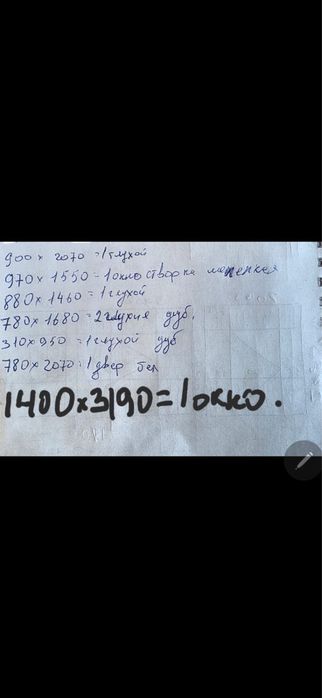 900 x 2070 = 1 глухой
970 x 1550 = 1 окно створка маленкая
880 x 1460 = 1 глухой
780 x 1680 = 2 глухия дуб.
310 x 950 = 1 глухой дуб
780 x 2070 = 1 двер бел
1400x3190=1 окно.